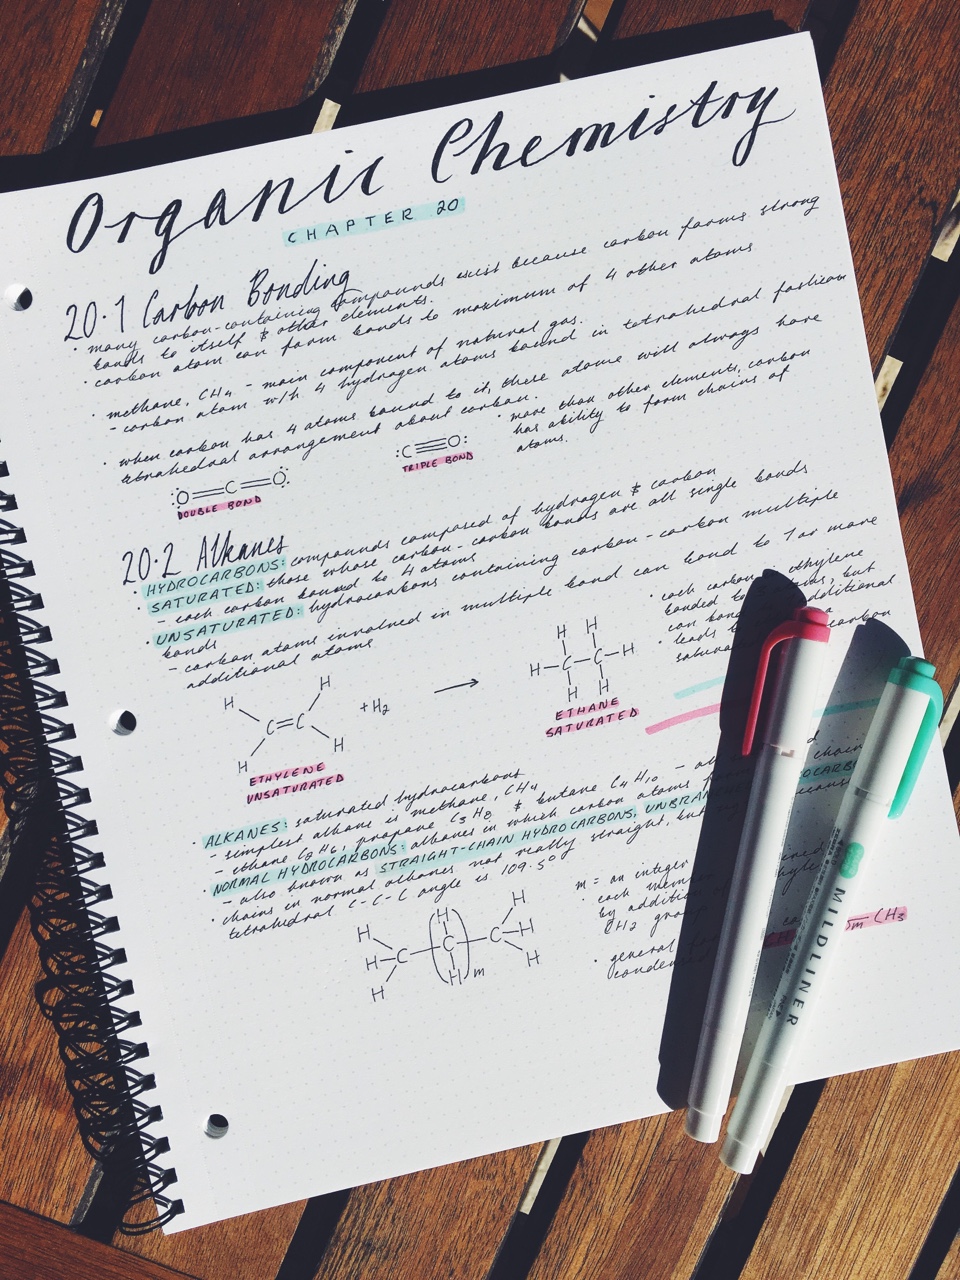 Organic Chemistry
CHAPTER 20
20.1 Carbon Bonding
· many carbon-containing compounds exist because carbon forms strong
bonds to itself & other elements.
· carbon atom can form bonds to maximum of 4 other atoms
· methane, CH4 - main component of natural gas.
- carbon atom with 4 hydrogen atoms bound in tetrahedral fashion
· when carbon has 4 atoms bound to it, these atoms will always have
tetrahedral arrangement about carbon.
:O=C=O:
DOUBLE BOND
:C≡O:
TRIPLE BOND
· more than other elements, carbon
has ability to form chains of
atoms.
20.2 Alkanes
· HYDROCARBONS: compounds composed of hydrogen & carbon
· SATURATED: those whose carbon-carbon bonds are all single bonds
- each carbon bound to 4 atoms
· UNSATURATED: hydrocarbons containing carbon-carbon multiple
bonds
- carbon atoms involved in multiple bond can bond to 1 or more
additional atoms
· each carbon ethylene
bonded to but
can bond additional
leads
carbon
H H
C=C
H H
+H2
→
ETHYLENE
UNSATURATED
H H
H-C-C-H
H H
ETHANE
SATURATED
· ALKANES: saturated hydrocarbons
- simplest alkane is methane, CH4
- ethane C2H6, propane C3H8 & butane C4H10 -
· NORMAL HYDROCARBONS: alkanes in which carbon atoms chain
- also known as STRAIGHT-CHAIN HYDROCARBONS,
· chains in normal alkanes not really straight,
tetrahedral C-C-C angle is 109.5°
H H H
H-C-(C)-C-H
H H m H
m = an integer
each
by
CH2 group
· general
m CH3
MILDLINER